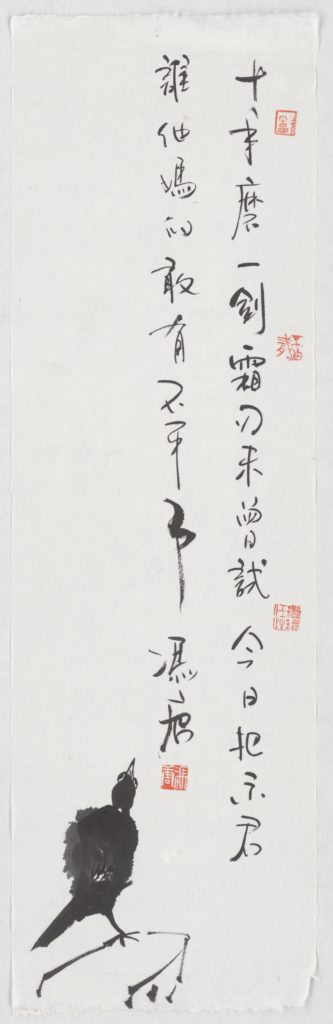 十年磨一劍霜刃未曾試今日把示君
誰他媽的敢有不平事
馮唐
馮唐